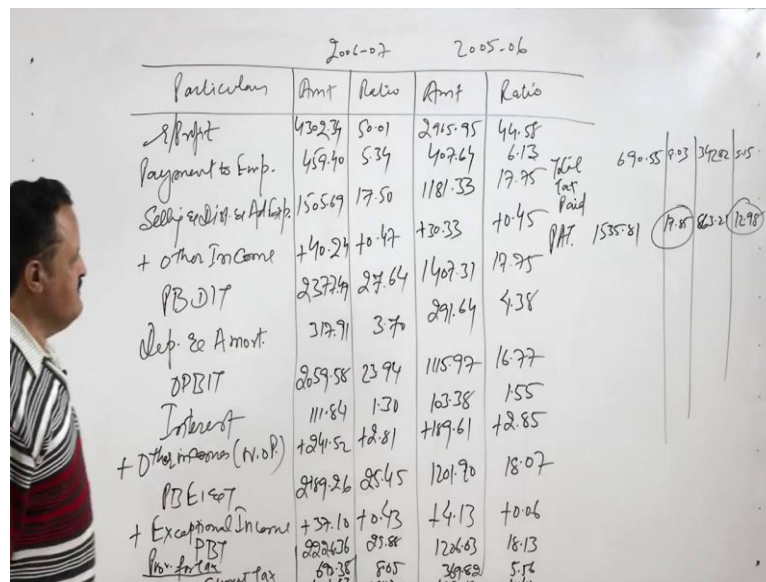 2006-07 2005-06
Particulars Amt Ratio Amt Ratio
G/Profit 4302.34 50.01 2965.95 44.58
Payment to Emp. 459.40 5.34 407.64 6.13
Selling & Dist. & Ad Exp. 1505.69 17.50 1181.33 17.75
+ Other Income +40.24 +0.47 +30.33 +0.45
PBDIT 2377.49 27.64 1407.31
Dep. & Amort. 317.91 3.70 291.64 4.38
OPBIT 2059.58 23.94 1115.97 16.77
Interest 111.84 1.30 103.38 1.55
+ Other incomes (N.OP.) +241.52 +2.81 +189.61 +2.85
PBEI&T 2189.26 25.45 1201.90 18.07
+ Exceptional Income +37.10 +0.43 +4.13 +0.06
PBT 2226.36 25.88 1226.03 18.13
Prov. for tax 8.05 369.82 5.56
Tax
Total Tax Paid 690.55 8.03 342.82 5.15
PAT. 1535.81 17.85 863.21 12.98